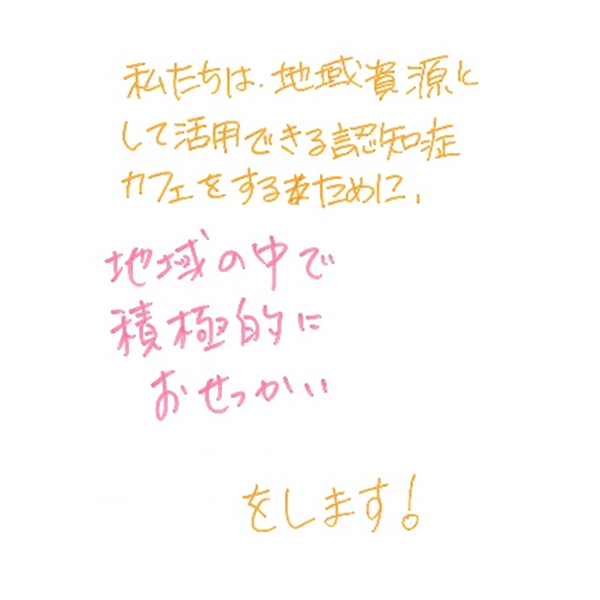 私たちは、地域資源と
して活用できる認知症
カフェをするために、
地域の中で
積極的に
おせっかい
をします!